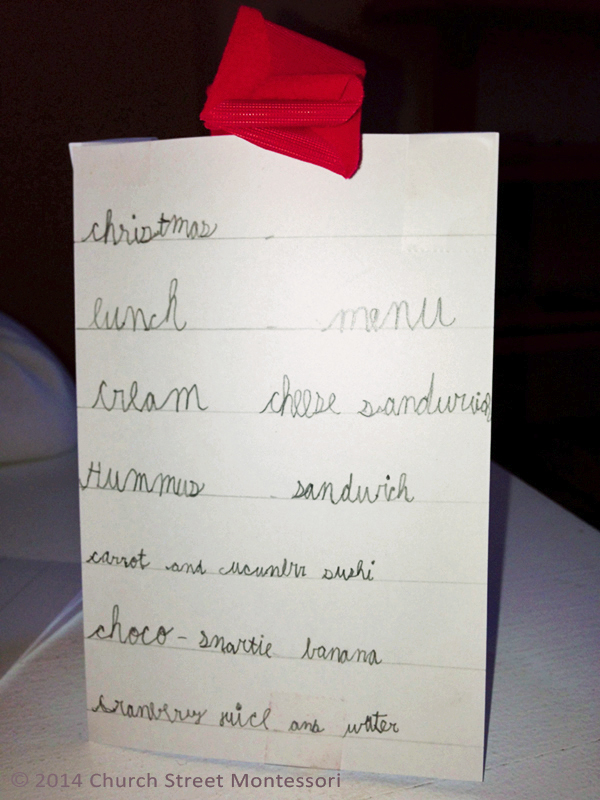 christmas
lunch menu
cream cheese sandwich
Hummus sandwich
carrot and cucumber sushi
choco - smartie banana
cranberry juice and water
© 2014 Church Street Montessori